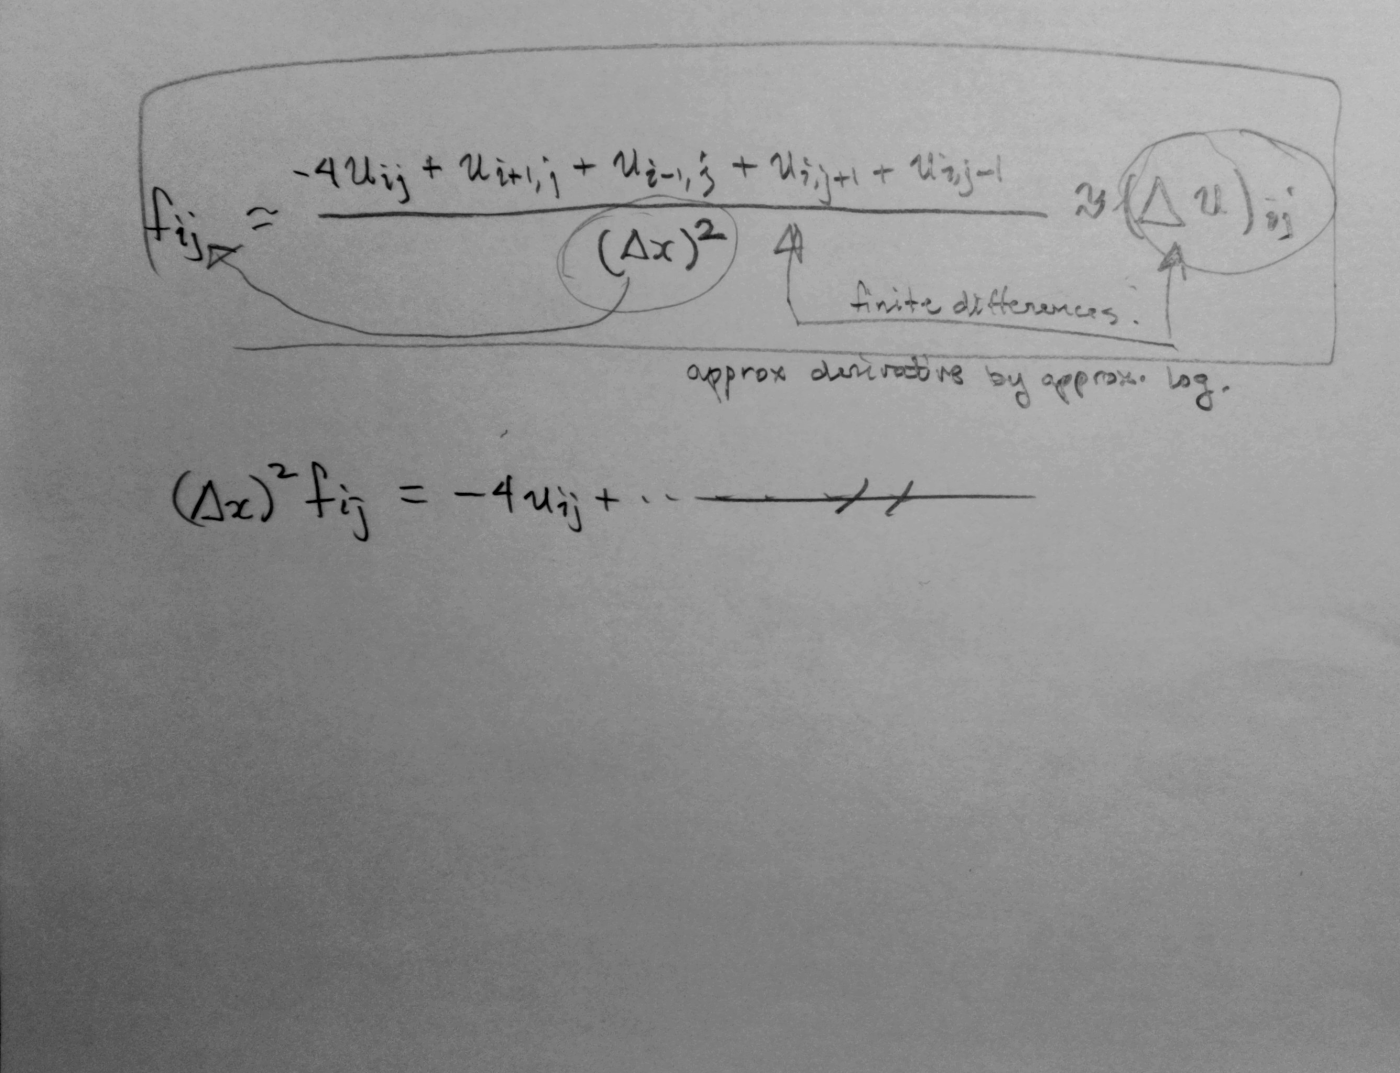 -4u_{ij} + u_{i+1,j} + u_{i-1,j} + u_{i,j+1} + u_{i,j-1}
f_{ij} ≈ ≈ (Δu)_{ij}
(Δx)^2
finite differences.
approx derivative by approx.
(Δx)^2 f_{ij} = -4u_{ij} + ..